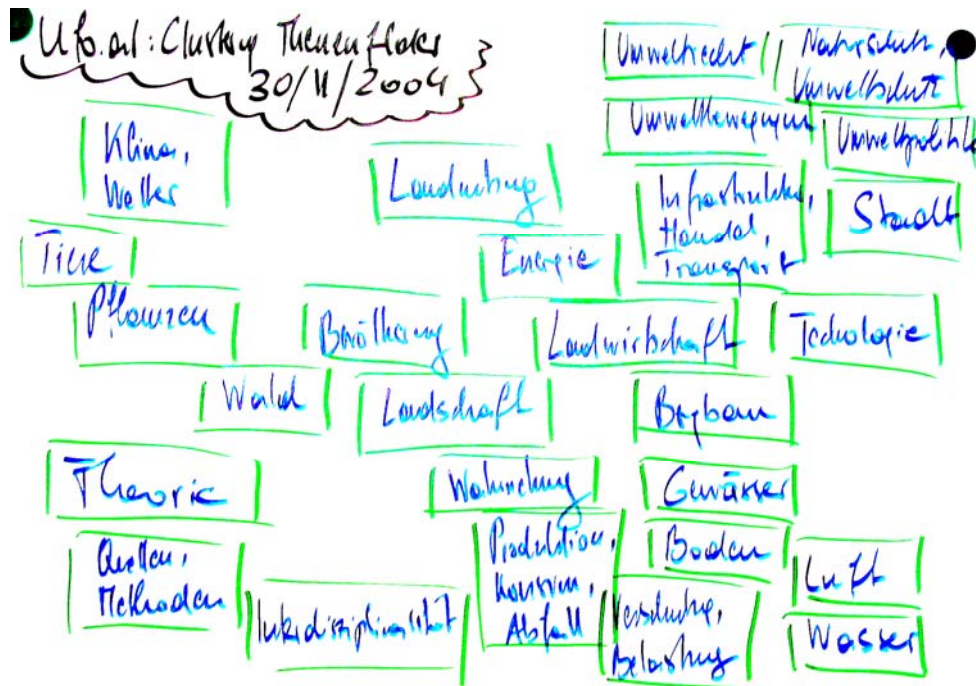 Clustering Themenfelder
30/11/2004
Umweltrecht
Naturschutz,
Umweltschutz
Umweltbewegungen
Umweltpolitik
Klima,
Wetter
Landnutzung
Infrastruktur,
Handel,
Transport
Stadt
Tiere
Energie
Pflanzen
Bevölkerung
Landwirtschaft
Technologie
Wald
Landschaft
Bergbau
Theorie
Wahrnehmung
Gewässer
Quellen,
Methoden
Produktion,
Konsum,
Abfall
Boden
Luft
Interdisziplinarität
Verschmutzung,
Belastung
Wasser